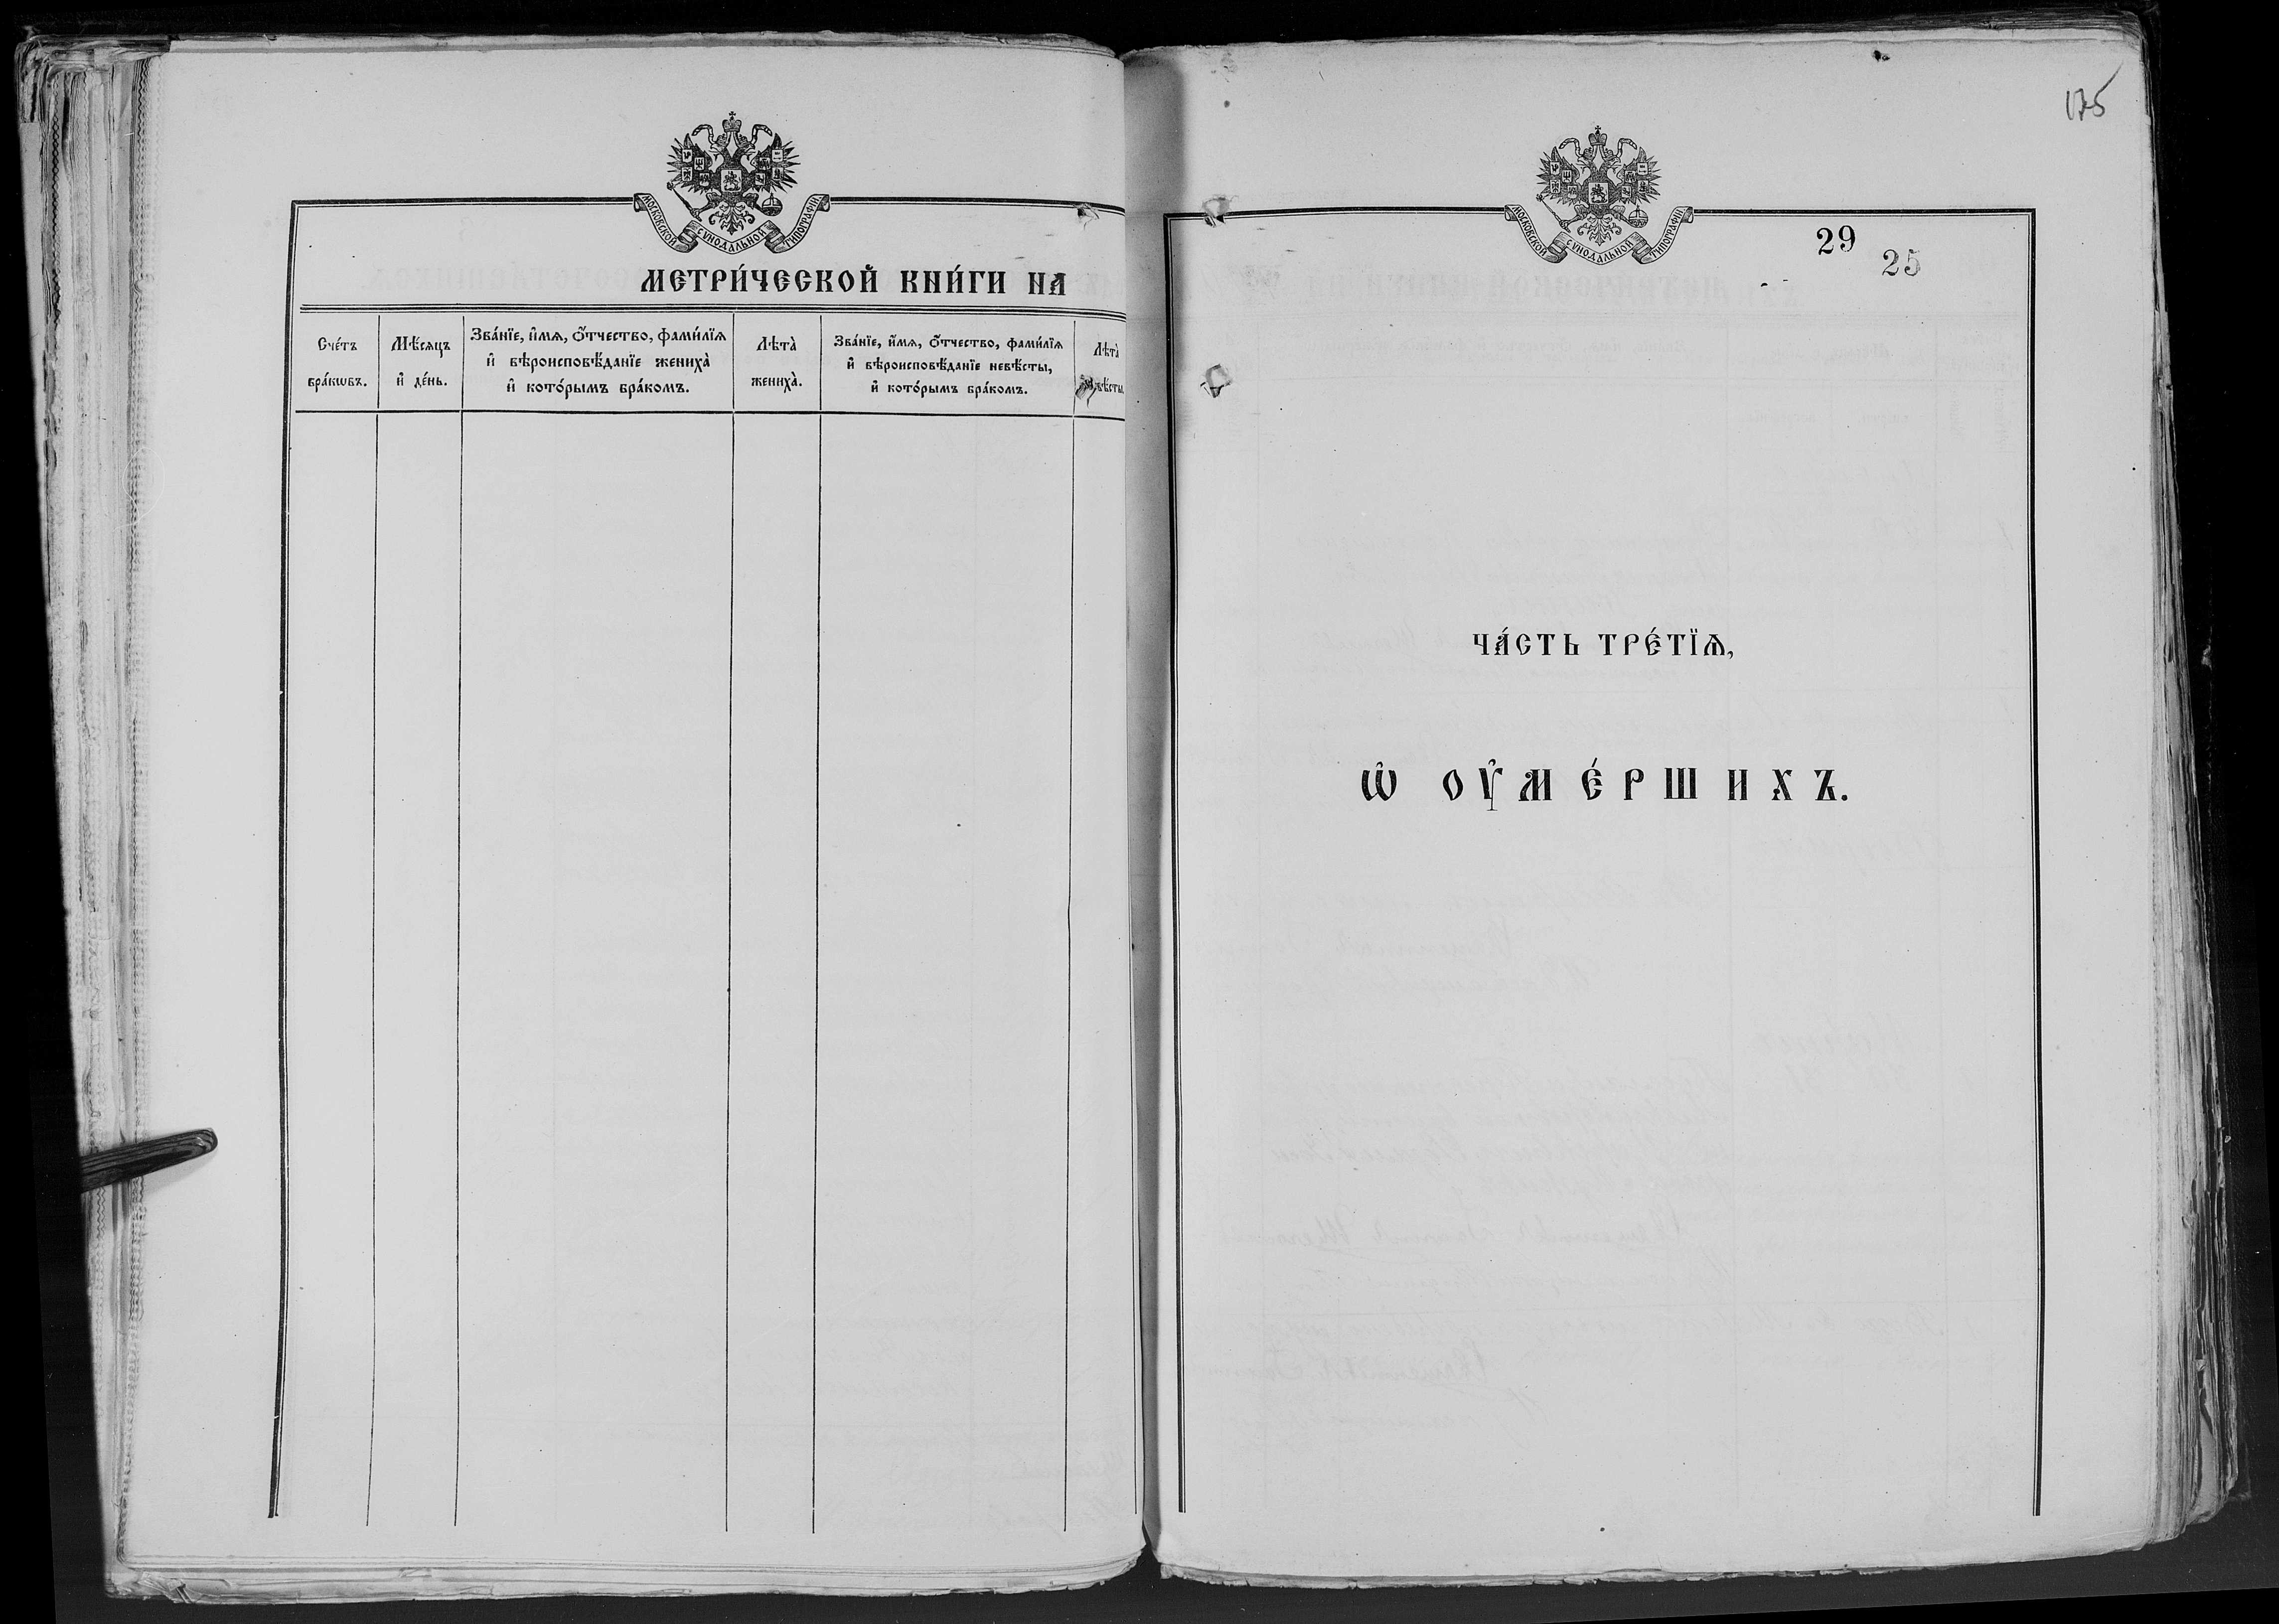 МОСКОВСКОЙ СѴНОДАЛЬНОЙ ТИПОГРАФІИ
МЕТРИ́ЧЕСКОЙ КНИ́ГИ НА
Сче́тъ
бра́кѡвъ.
Мѣ́сяцъ
и҆ де́нь.
Зва́нїе, и҆́мѧ, ѻ҆́тчество, фами́лїѧ
и҆ вѣроисповѣ́данїе жениха̀
и҆ кото́рымъ бра́комъ.
Лѣта̀
жениха̀.
Зва́нїе, и҆́мѧ, ѻ҆́тчество, фами́лїѧ
и҆ вѣроисповѣ́данїе невѣ́сты,
и҆ кото́рымъ бра́комъ.
Лѣта̀
175
МОСКОВСКОЙ СѴНОДАЛЬНОЙ ТИПОГРАФІИ
29
25
ЧА́СТЬ ТРЕ́ТЇѦ,
Ѡ҆ ОУ҆МЕ́РШИХЪ.